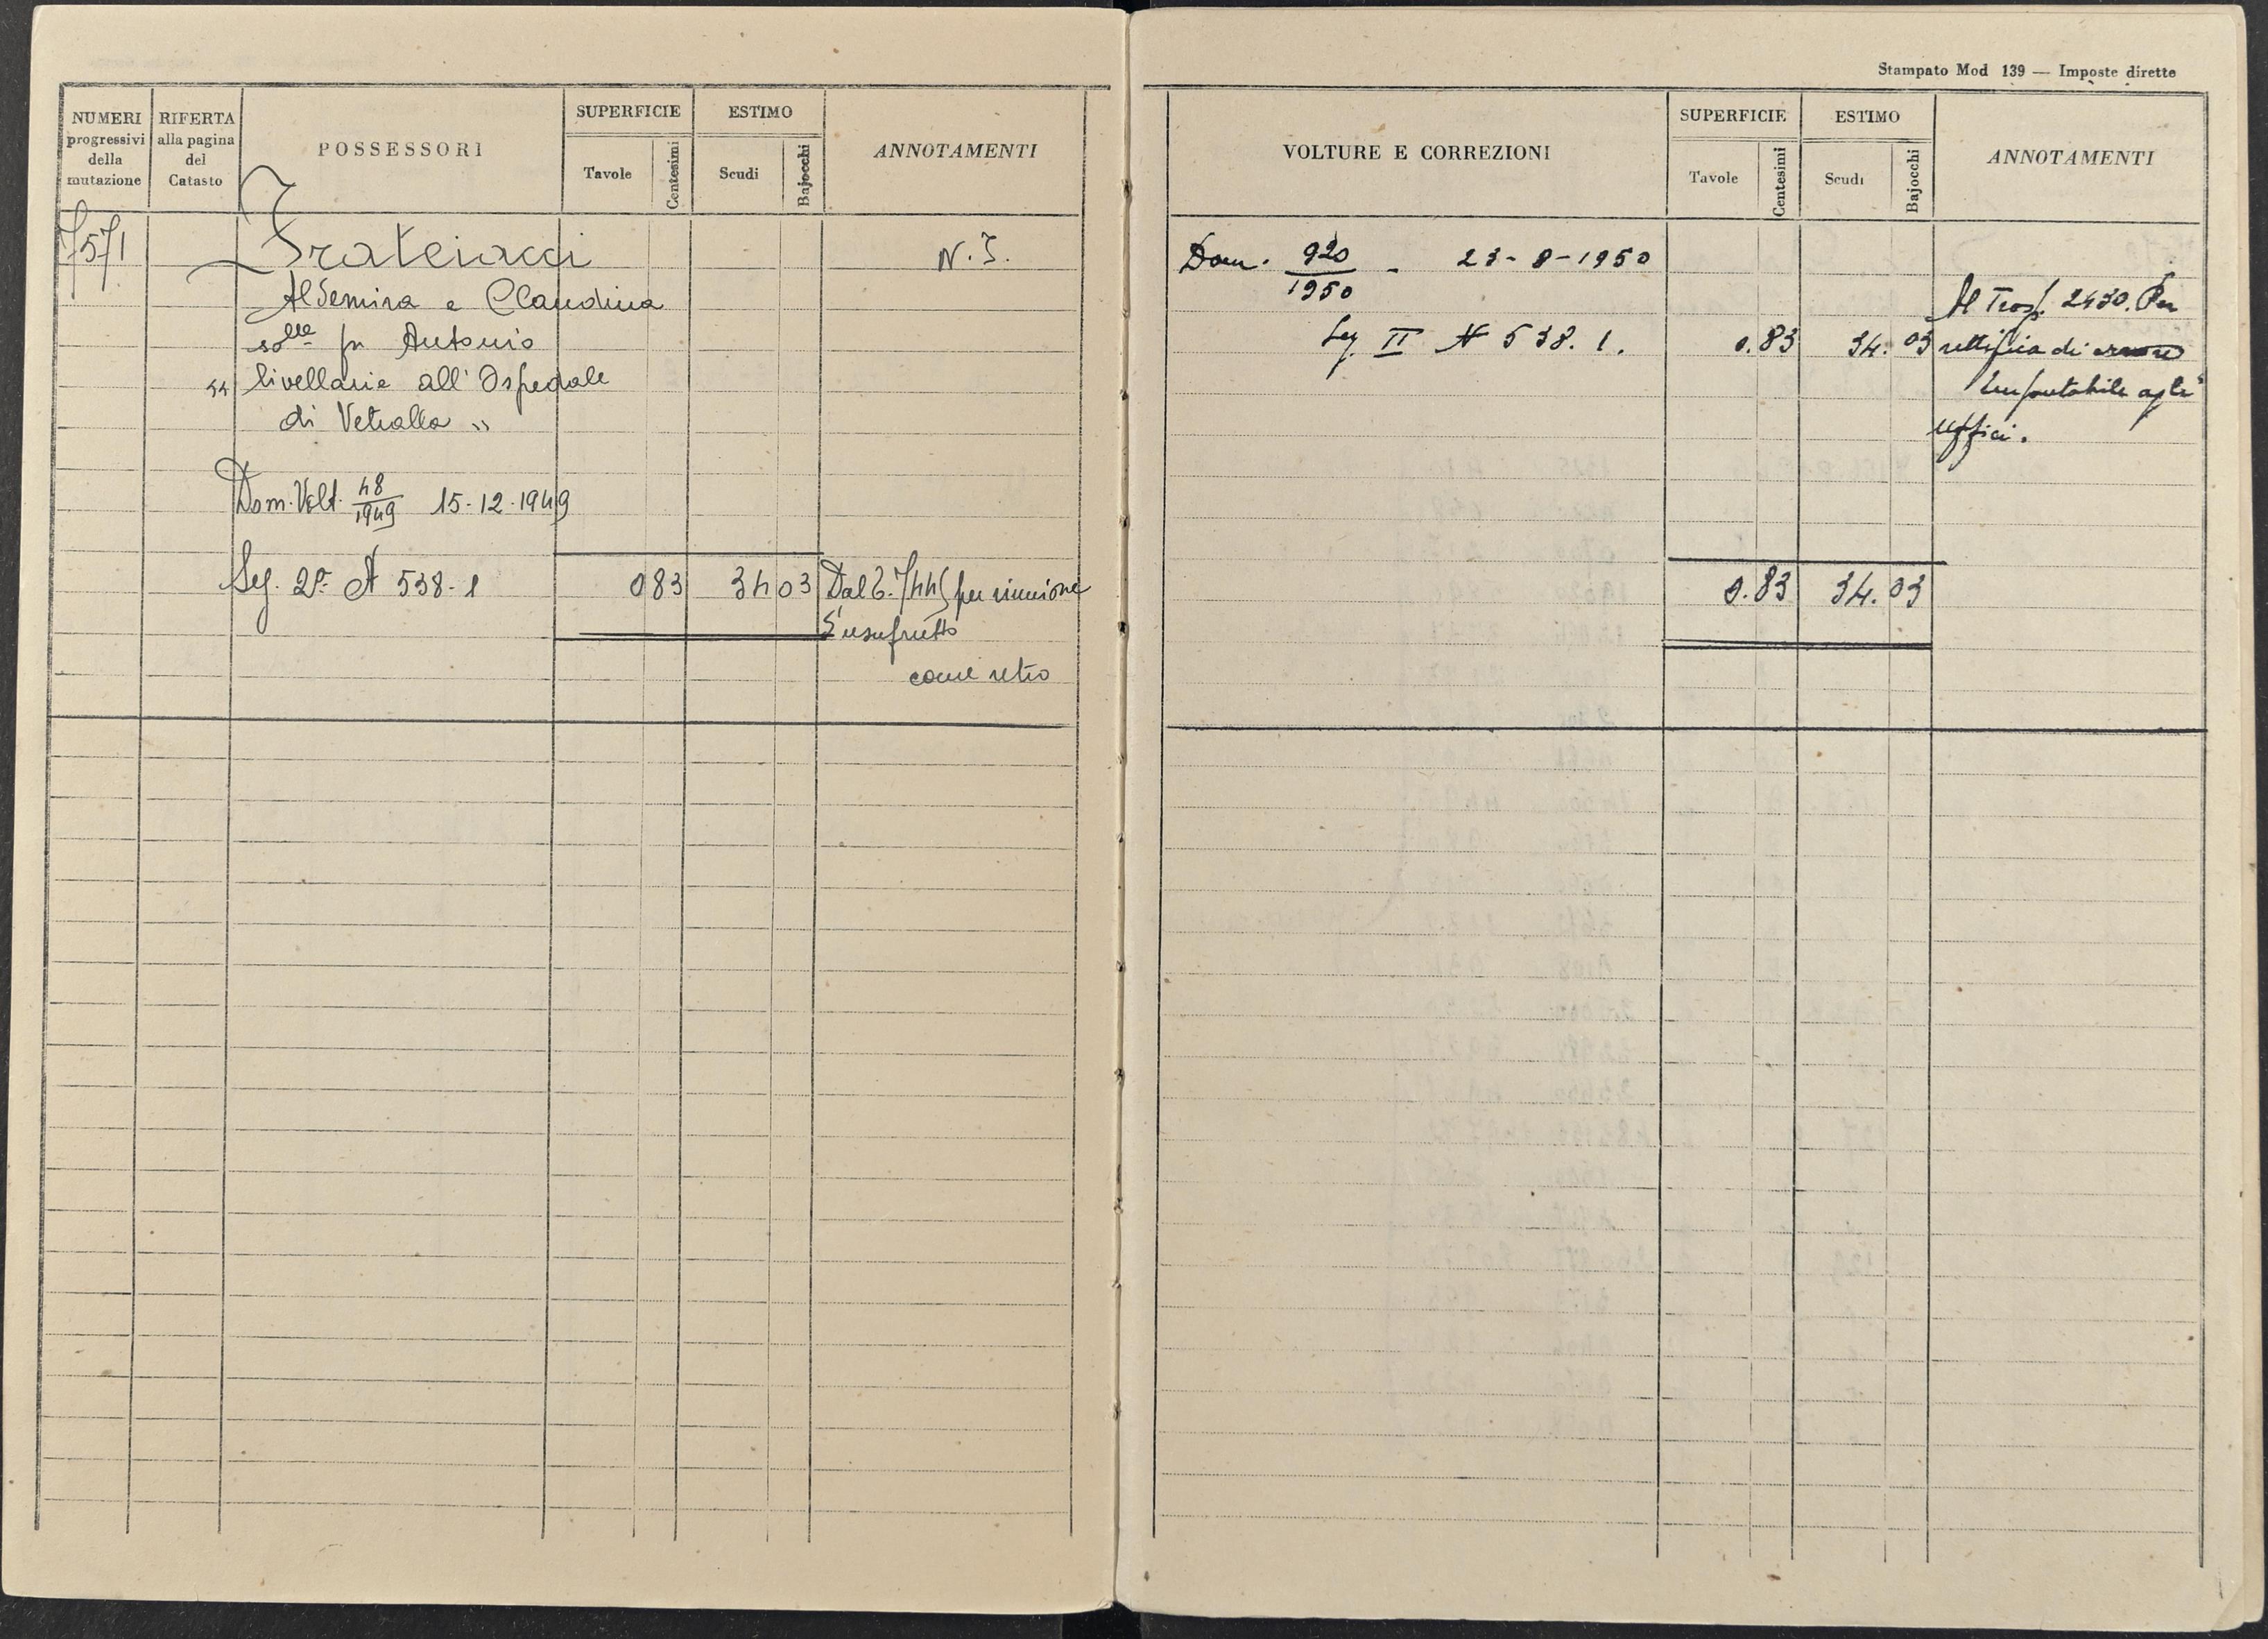 NUMERI progressivi della mutazione
RIFERTA alla pagina del Catasto
POSSESSORI
SUPERFICIE
Tavole
Centesimi
ESTIMO
Scudi
Bajocchi
ANNOTAMENTI
7571
Frateiacci
N. I.
Aldemira e Claudina
solle fu Antonio
"livellarie all'Ospedale
di Vetralla"
Dom. Volt. 48/1949 15-12-1949
Seg. 2ª A 538-1 0 83 34 03 Dal 6. 7445 per riunione
d'usufrutto
come retro
Stampato Mod 139 — Imposte dirette
VOLTURE E CORREZIONI
SUPERFICIE
Tavole
Centesimi
ESTIMO
Scudi
Bajocchi
ANNOTAMENTI
Dom. 920/1950 - 23-8-1950
Al Trasp. 2430. Per
Seg. II A 538. 1. 0.83 34.03 rettifica di errore
imputabile agli
uffici.
0.83 34.03